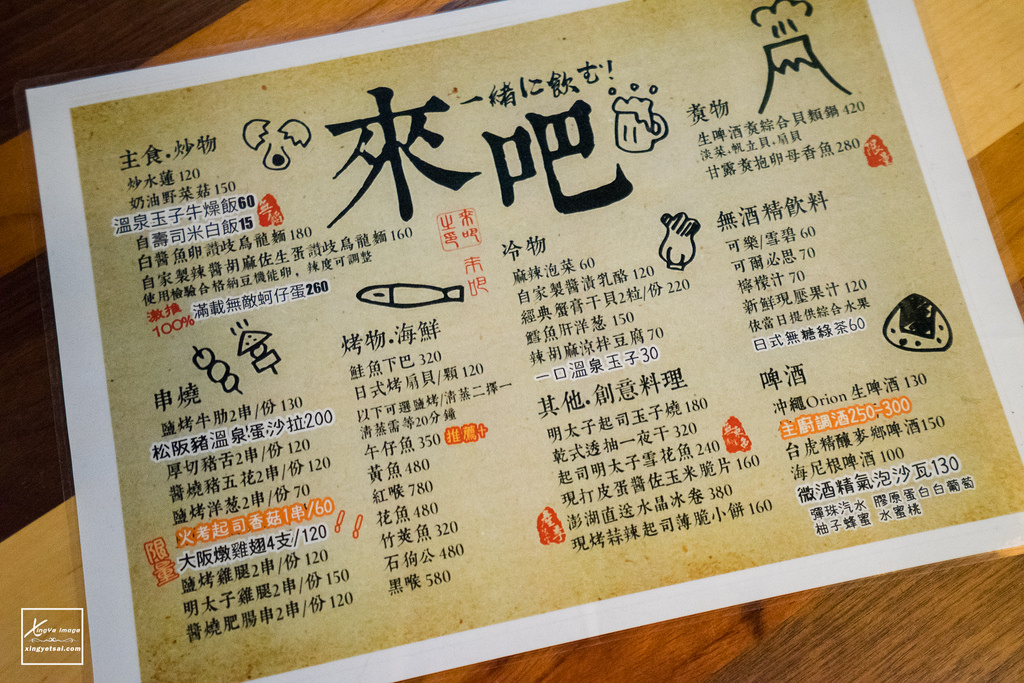 來吧
一緒に飲む!
主食.炒物
炒水蓮 120
奶油野菜菇 150
溫泉玉子牛燥飯60
自壽司米白飯15
白醬魚卵讚歧烏龍麵 180
自家製辣醬胡麻佐生蛋讚歧烏龍麵 160
使用檢驗合格納豆機能卵,辣度可調整
激推
100%
滿載無敵蚵仔蛋260
串燒
鹽烤牛肋2串/份 130
松阪豬溫泉!蛋沙拉200
厚切豬舌2串/份 120
醬燒豬五花2串/份 120
鹽烤洋葱2串/份 70
火考起司香菇1串/60
限量
大阪燉雞翅4支/120
!!
鹽烤雞腿2串/份 120
明太子雞腿2串/份 150
醬燒肥腸串2串/份 120
烤物.海鮮
鮭魚下巴 320
日式烤扇貝/顆 120
以下可選鹽烤/清蒸二擇一
清蒸需等20分鐘
午仔魚 350 推薦+
黃魚 480
紅喉 780
花魚 480
竹莢魚 320
石狗公 480
黑喉 580
來吧
冷物
麻辣泡菜 60
自家製醬漬乳酪 120
經典蟹膏干貝2粒/份 220
鱈魚肝洋葱 150
辣胡麻涼拌豆腐 70
一口溫泉玉子30
其他.創意料理
明太子起司玉子燒 180
乾式透抽一夜干 320
起司明太子雪花魚 240
現打皮蛋醬佐玉米脆片 160
澎湖直送水晶冰卷 380
現烤蒜辣起司薄脆小餅 160
煮物
生啤酒煮綜合貝類鍋 420
淡菜.帆立貝.扇貝
甘露煮抱卵母香魚 280
無酒精飲料
可樂/雪碧 60
可爾必思 70
檸檬汁 70
新鮮現壓果汁 120
依當日提供綜合水果
日式無糖綠茶60
啤酒
沖繩Orion 生啤酒 130
主廚調酒250-300
台虎精釀麥鄉啤酒150
海尼根啤酒 100
微酒精氣泡沙瓦130
彈珠汽水 膠原蛋白白葡萄
柚子蜂蜜 水蜜桃
XingYe image
xingyetsai.com